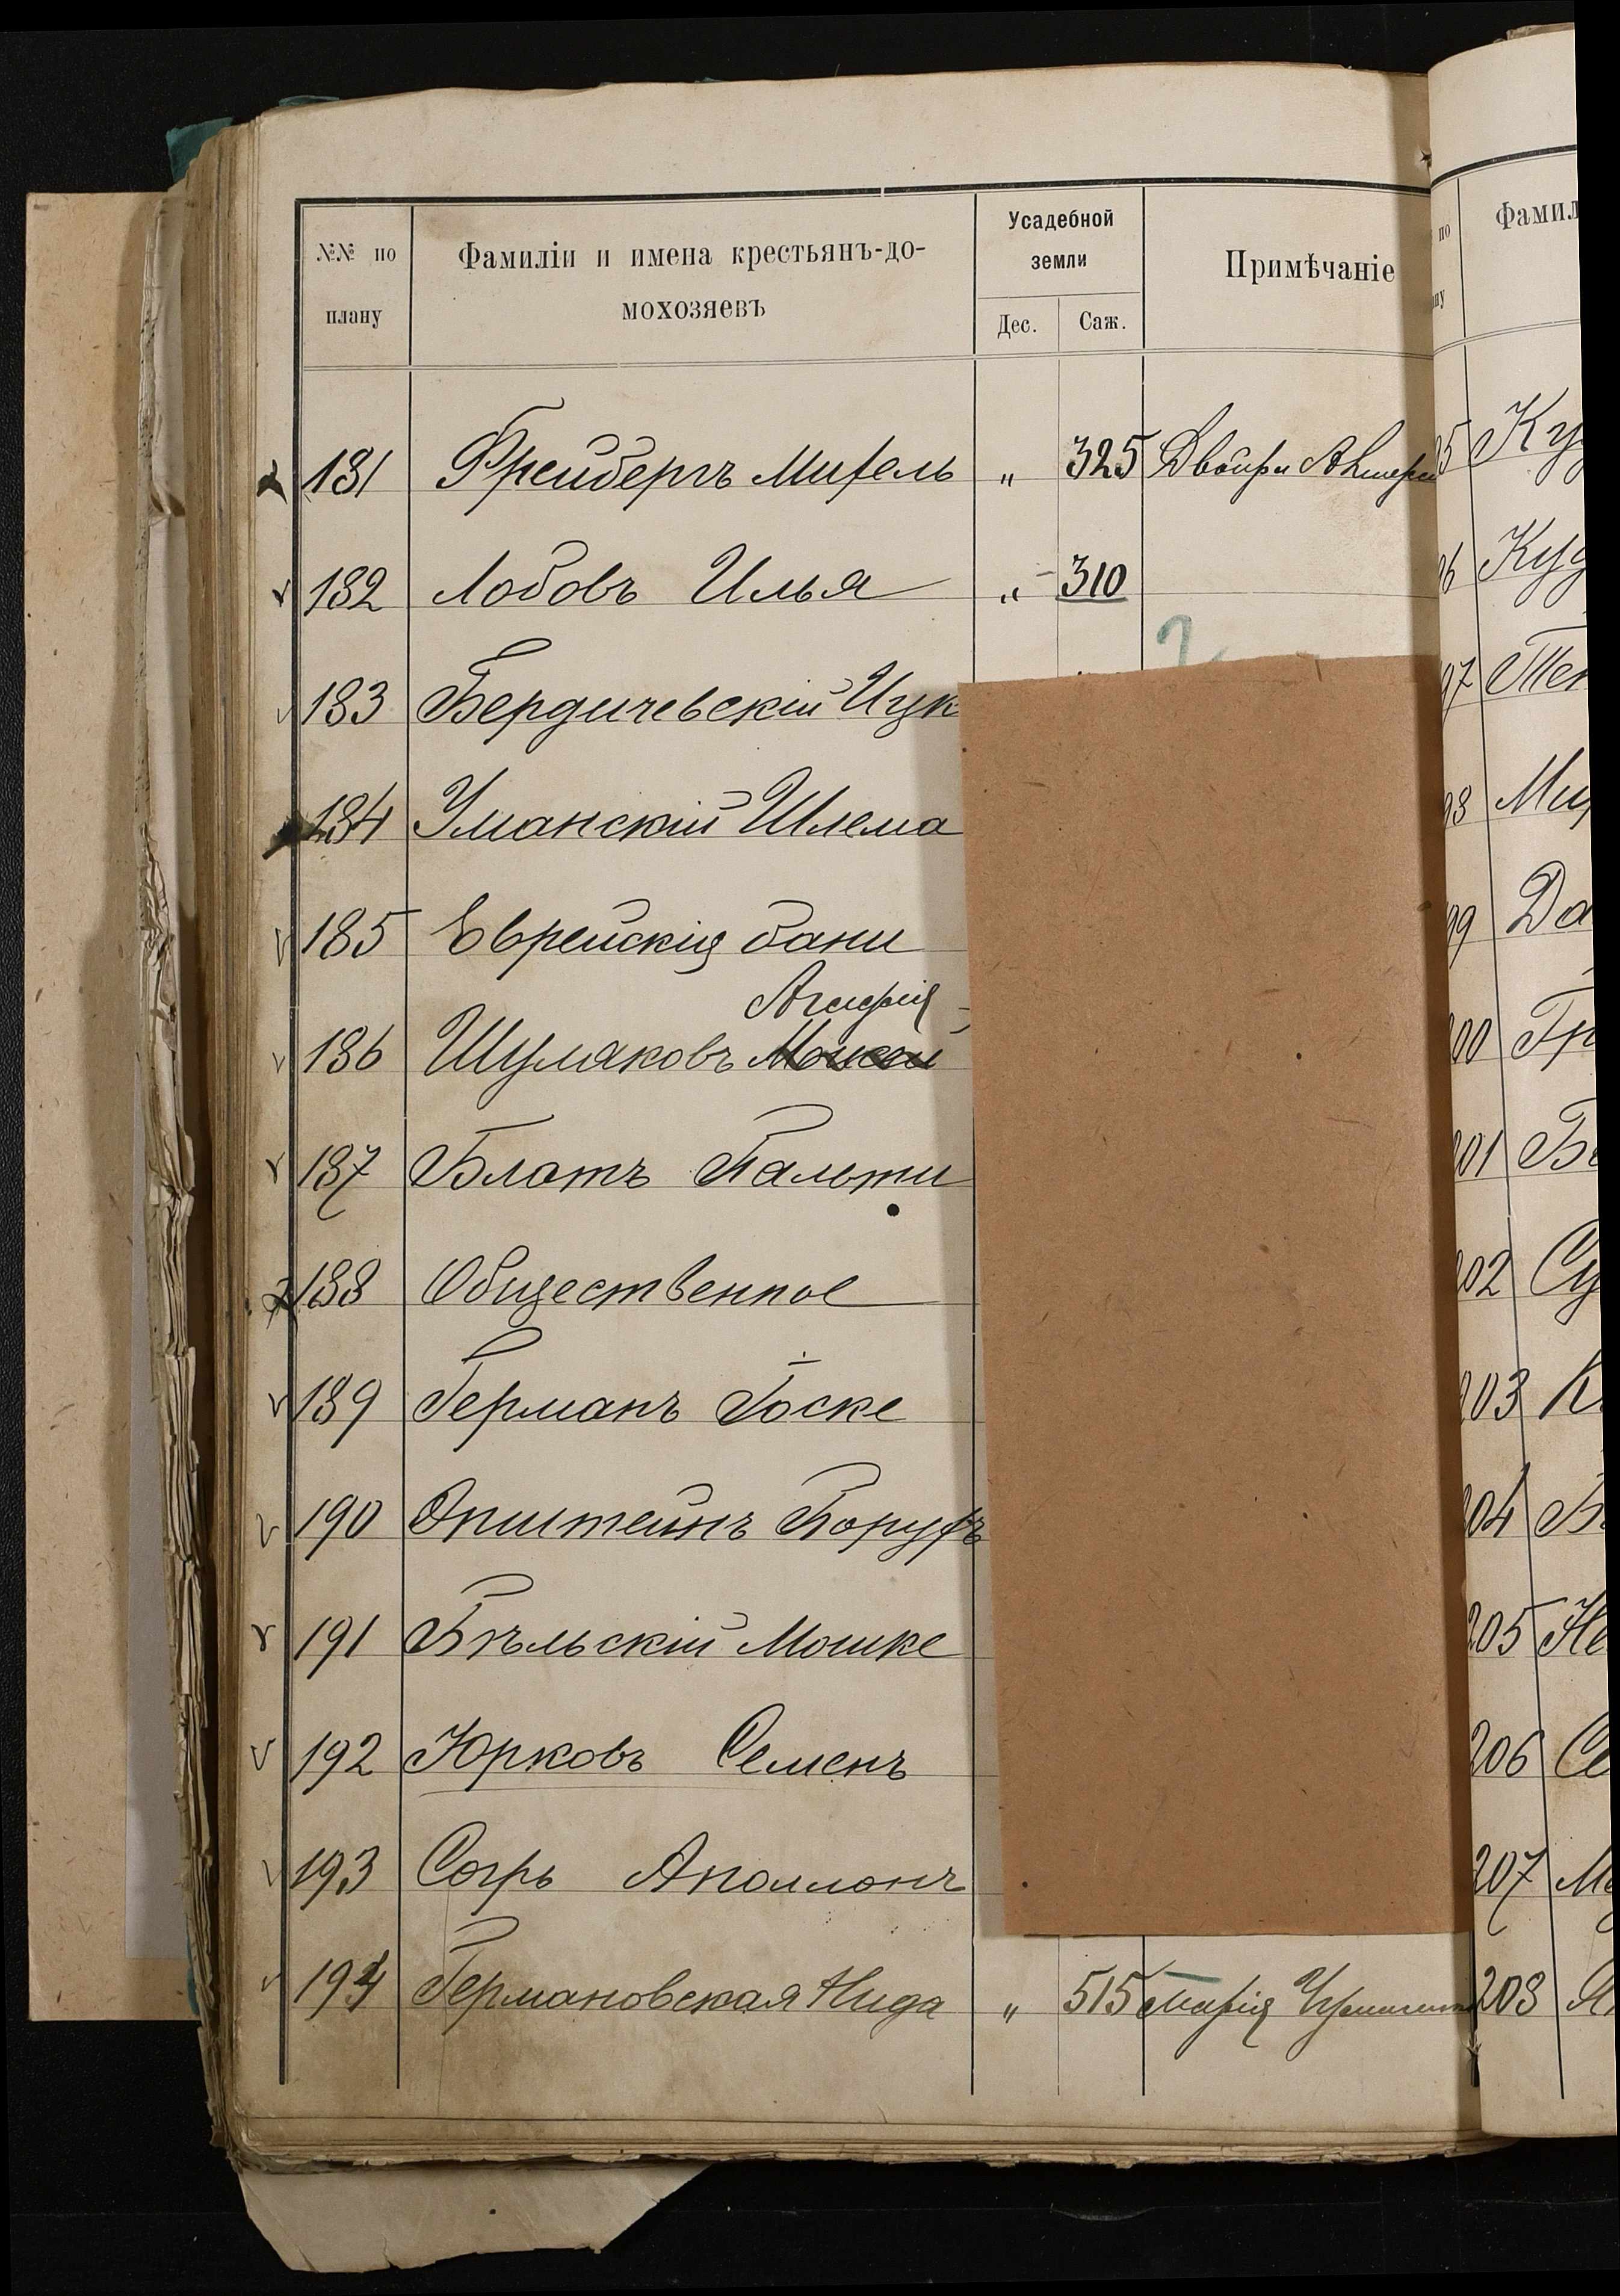 №№ по плану
Фамиліи и имена крестьянъ-до-
мохозяевъ
Усадебной
земли
Дес. Саж.
Примѣчаніе
181 Фрейбергъ Михель " 325 Двойра
182 Лобовъ Илья " 310
2
183 Бердичевскій Ицк
184 Уманскій Шлема
185 Еврейскія бани
186 Шуляковъ Моисей
187 Блатъ Пальти
188 Общественное
189 Германъ Іоске
190 Эпштейнъ Борухъ
191 Бѣльскій Мошке
192 Юрковъ Семенъ
193 Аполлонъ
194 Германовская Нида " 515 Марія
по
Фамил
Ку
96 Куд
97
98
99 Да
200 Гр
201
202 Су
203 К
204
205 Не
206 Се
207 Ма
208